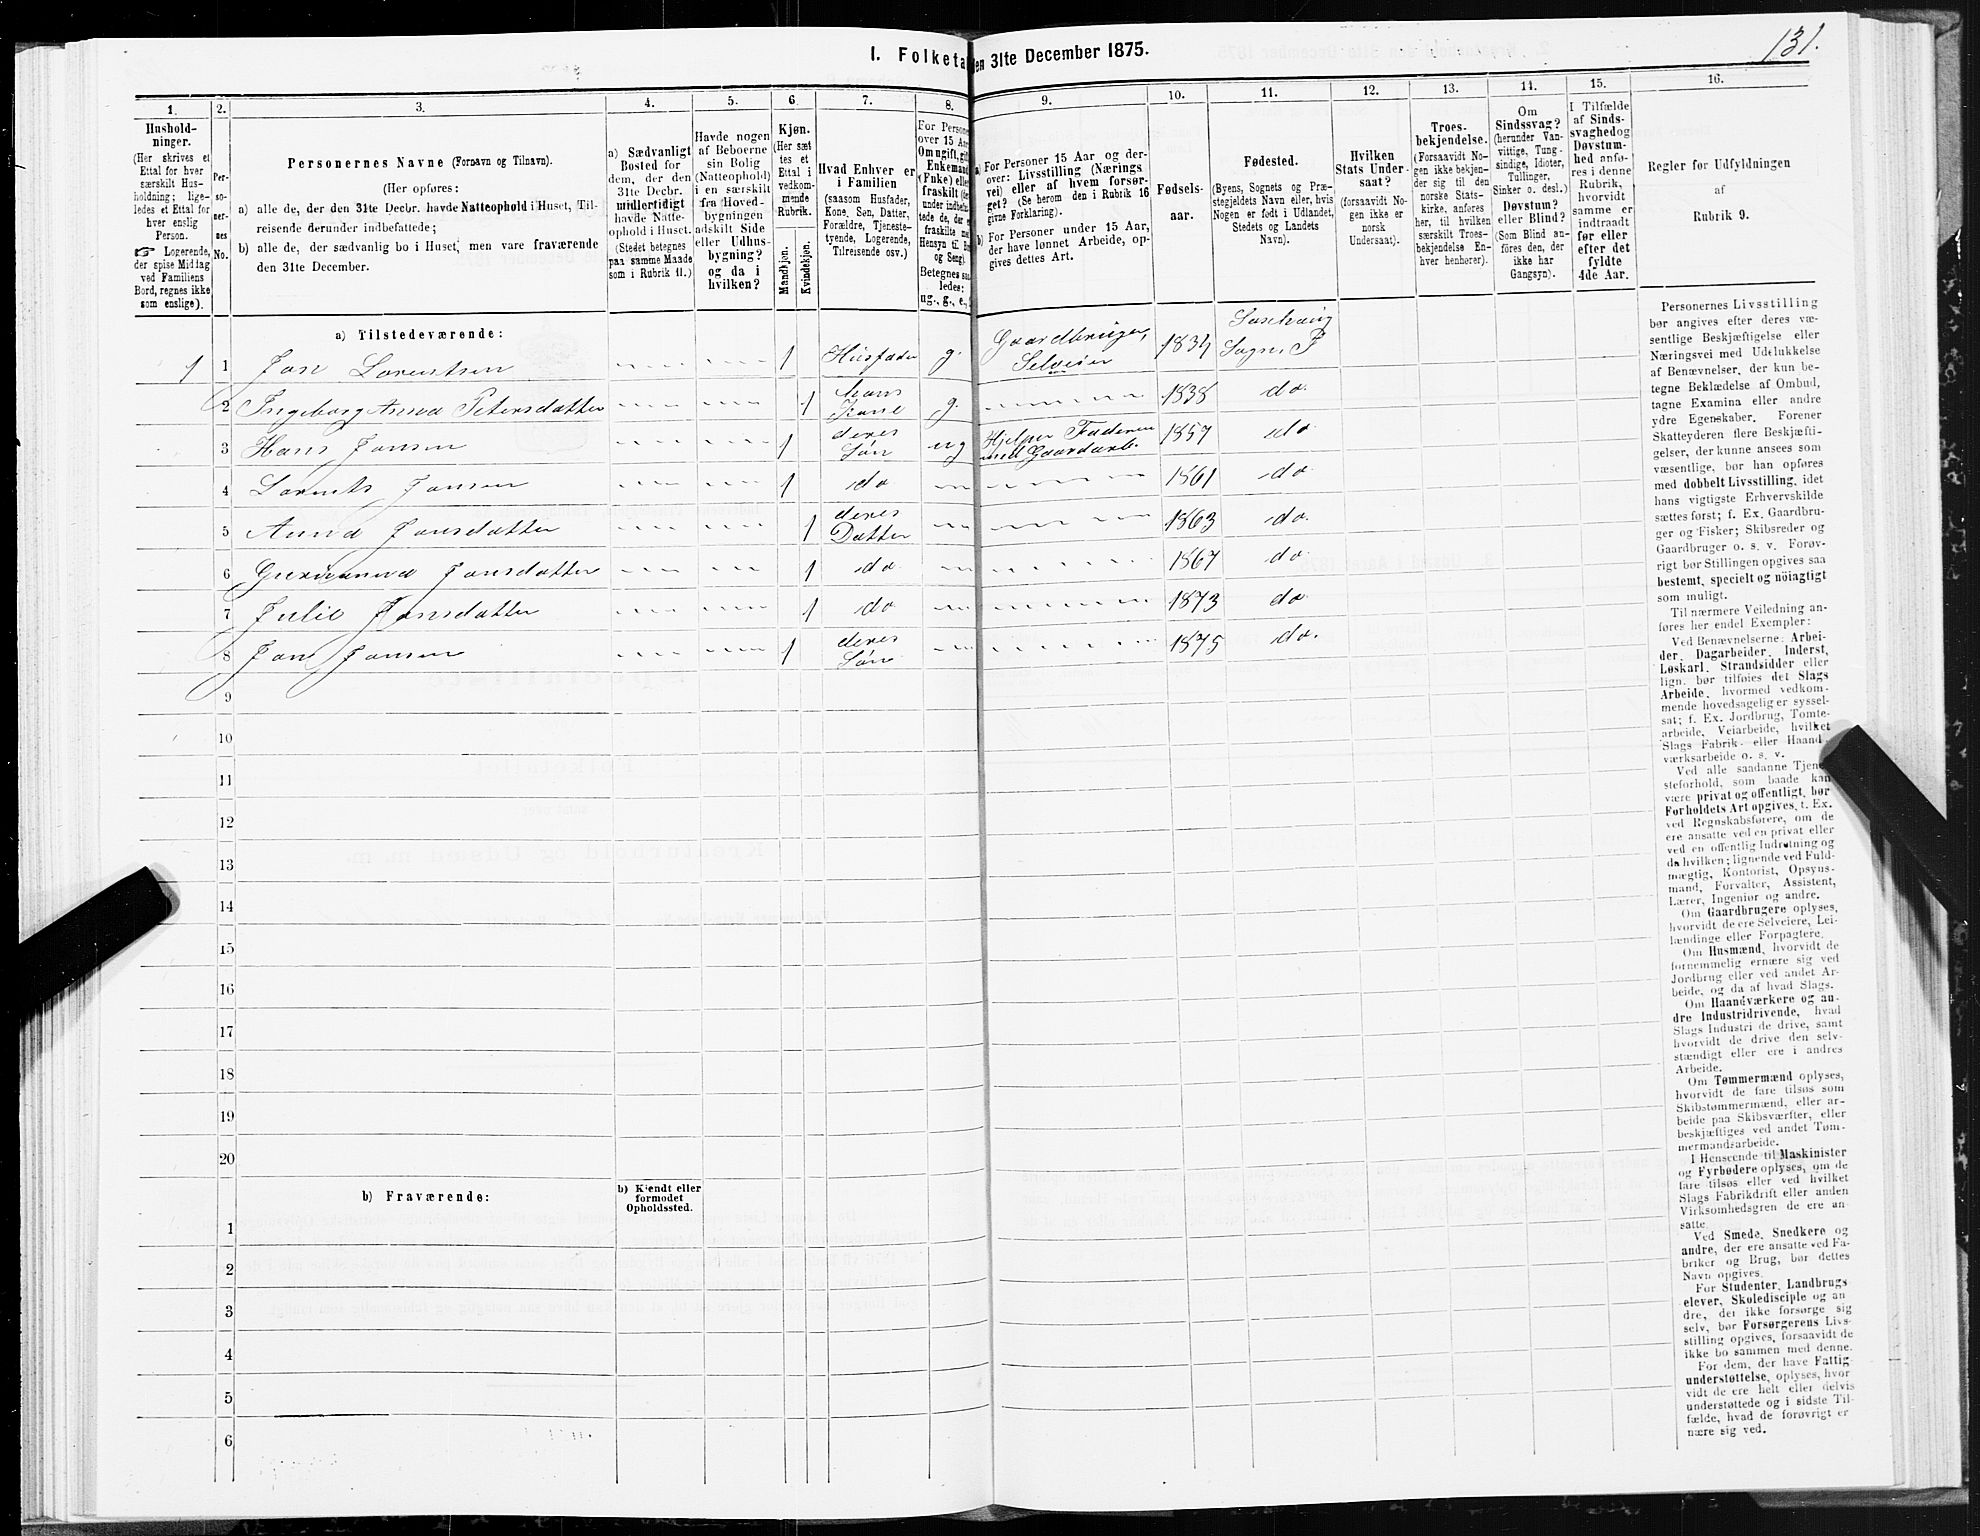 131.
I. Folketal den 31te December 1875.
1.
Hushold-
ninger.
(Her skrives et
Ettal for hver
særskilt Hus-
holdning; lige-
ledes et Ettal for
hver enslig
Person.
☞ Logerende,
der spise Middag
ved Familiens
Bord, regnes ikke
som enslige).
2.
Per-
so-
ner-
nes
No.
3.
Personernes Navne (Fornavn og Tilnavn).
(Her opføres:
a) alle de, der den 31te Decbr. havde Natteophold i Huset, Til-
reisende derunder indbefattede;
b) alle de, der sædvanlig bo i Huset, men vare fraværende
den 31te December.
4.
a) Sædvanligt
Bosted for
dem, der den
31te Decbr.
midlertidigt
havde Natte-
ophold i Huset.
(Stedet betegnes
paa samme Maade
som i Rubrik 11.)
5.
Havde nogen
af Beboerne
sin Bolig
(Natteophold)
i en særskilt
fra Hoved-
bygningen
adskilt Side
eller Udhus-
bygning?
og da i
hvilken?
6.
Kjøn.
(Her sæt
tes et
Ettal i
vedkom-
mende
Rubrik.
Mandkjøn.
Kvindekjøn.
7.
Hvad Enhver er
i Familien
(saasom Husfader,
Kone, Søn, Datter,
Forældre, Tjeneste-
tyende, Logerende,
Tilreisende osv.)
8.
For Personer
over 15 Aar
Om ugift, gift
Enkemand
(Enke) eller
fraskilt
Betegnes saa-
ledes:
ug., g., e.,
9.
a) For Personer 15 Aar og der-
over: Livsstilling (Nærings
vei) eller af hvem forsør-
get? (Se herom den i Rubrik 16
givne Forklaring).
b) For Personer under 15 Aar,
der have lønnet Arbeide, op-
gives dettes Art.
10.
Fødsels-
aar.
11.
Fødested.
(Byens, Sognets og Præ-
stegjeldets Navn eller, hvis
Nogen er født i Udlandet,
Stedets og Landets
Navn).
12.
Hvilken
Stats Under-
saat?
(forsaavidt No-
gen ikke er
norsk
Undersaat).
13.
Troes-
bekjendelse.
(Forsaavidt No-
gen ikke bekjen-
der sig til den
norske Stats-
kirke, anføres
her, til hvilken
særskilt Troes-
bekjendelse En-
hver henhører).
14.
Om
Sindssvag?
(herunder Van-
vittige, Tung-
sindige, Idioter,
Tullinger,
Sinker o. desl.)
Døvstum?
eller Blind?
(Som Blind an-
føres den, der
ikke har
Gangsyn).
15.
I Tilfælde
af Sinds-
svaghed og
Døvstum-
hed anfø-
res i denne
Rubrik,
hvorvidt
samme er
indtraadt
før eller
efter det
fyldte
4de Aar.
16.
Regler for Udfyldningen
af
Rubrik 9.
a) Tilstedeværende:
1 1 Jon Lorentsen 1 Husfader g. Gaardbruger, Selveier 1834 Sogn P
2 Ingeborg Anna Petersdatter 1 hans Kone g. 1838 do.
3 Hans Jonsen 1 deres Søn ug Hjelper Faderen med Gaardarb. 1857 do
4 Lorents Jonsen 1 do 1861 do
5 Anna Jonsdatter 1 deres Datter 1863 do.
6 Jonsdatter 1 do. 1867 do
7 Julie Jonsdatter 1 do 1873 do
8 Jon Jonsen 1 deres Søn 1875 do.
9
10
11
12
13
14
15
16
17
18
19
20
b) Fraværende:
b) Kjendt eller
formodet
Opholdssted.
1
2
3
4
5
6
Personernes Livsstilling
bør angives efter deres væ-
sentlige Beskjæftigelse eller
Næringsvei med Udelukkelse
af Benævnelser, der kun be-
tegne Beklædelse af Ombud,
tagne Examina eller andre
ydre Egenskaber. Forener
Skatteyderen flere Beskjæfti-
gelser, der kunne ansees som
væsentlige, bør han opføres
med dobbelt Livsstilling, idet
hans vigtigste Erhvervskilde
sættes først; f. Ex. Gaardbru-
ger og Fisker; Skibsreder og
Gaardbruger o. s. v. Forøv-
rigt bør Stillingen opgives saa
bestemt, specielt og nöiagtigt
som muligt.
Til nærmere Veiledning an-
føres her endel Exempler:
Ved Benævnelserne: Arbei-
der, Dagarbeider, Inderst,
Løskarl, Strandsidder eller
lign. bør tilføies det Slags
Arbeide, hvormed vedkom-
mende hovedsagelig er syssel-
sat; f. Ex. Jordbrug, Tomte-
arbeide, Veiarbeide, hvilket
Slags Fabrik- eller Haand-
værksarbeide o. s. v.
Ved alle saadanne Tjene-
steforhold, som baade kan
være privat og offentligt, bør
Forholdets Art opgives, f. Ex.
ved Regnskabsførere, om de
ere ansatte ved en privat eller
ved en offentlig Indretning og
da hvilken; lignende ved Fuld-
mægtig, Kontorist, Opsyns-
mand, Forvalter, Assistent,
Lærer, Ingeniør og andre.
Om Gaardbrugere oplyses,
hvorvidt de ere Selveiere, Lei-
lændinge eller Forpagtere.
Om Husmænd, hvorvidt de
fornemmelig ernære sig ved
Jordbrug eller ved andet Ar-
beide, og da af hvad Slags.
Om Haandværkere og an-
dre Industridrivende, hvad
Slags Industri de drive, samt
hvorvidt de drive den selv-
stændigt eller ere i andres
Arbeide.
Om Tømmermænd oplyses,
hvorvidt de fare tilsøs som
Skibstømmermænd, eller ar-
beide paa Skibsværfter, eller
beskjæftiges ved andet Tøm-
mermandsarbeide.
I Henseende til Maskinister
og Fyrbødere oplyses, om de
fare tilsøs eller ved hvilket
Slags Fabrikdrift eller anden
Virksomhedsgren de ere an-
satte.
Ved Smede, Snedkere og
andre, der ere ansatte ved Fa-
briker og Brug, bør dettes
Navn opgives.
For Studenter, Landbrugs
elever, Skoledisciple og an
dre, der ikke forsørge sig
selv, bør Forsørgerens Livs-
stilling opgives, forsaavidt de
ikke bo sammen med denne.
For dem, der have Fattig-
understøttelse, oplyses, hvor
vidt de ere helt eller delvis
understøttede og i sidste Til-
fælde, hvad de forøvrigt er
nære sig ved.